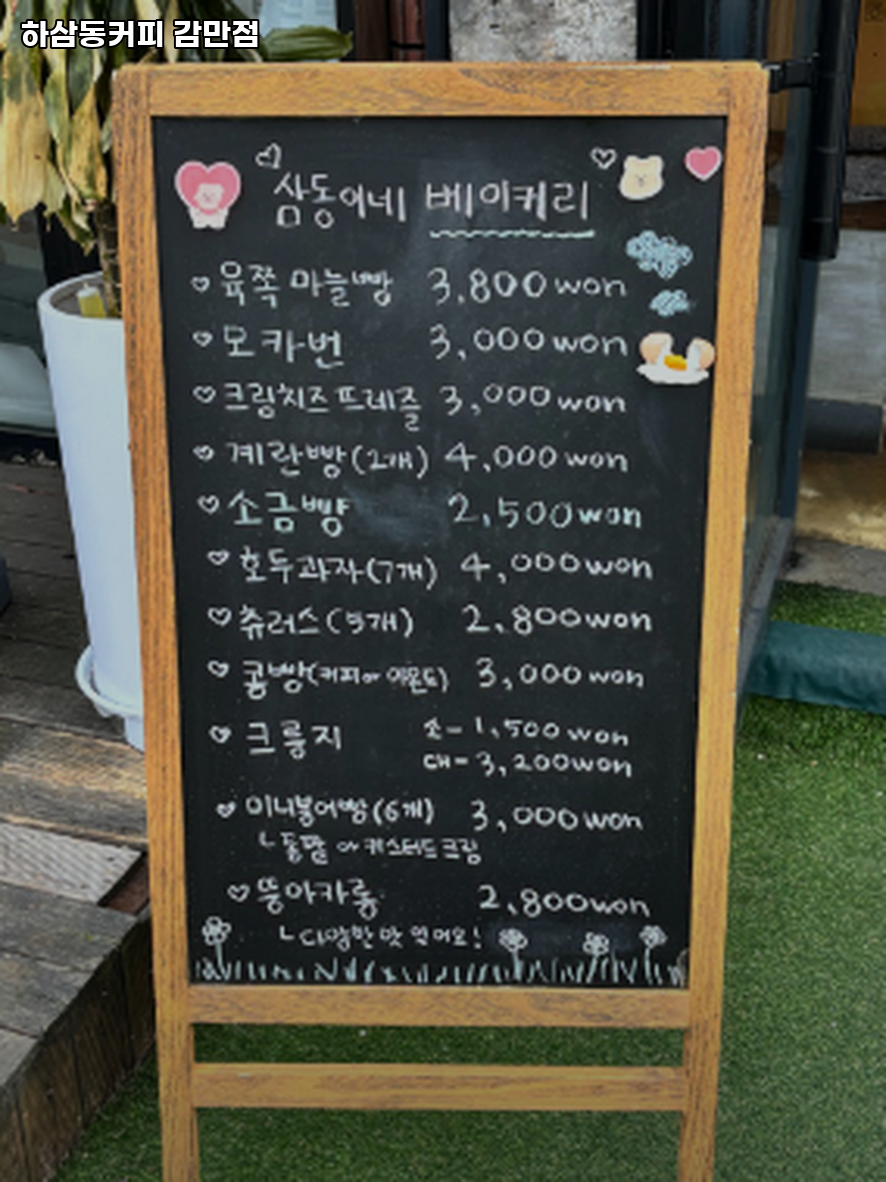 하삼동커피 감만점
삼동이네 베이커리
육쪽 마늘빵 3,800won
모카번 3,000won
크림치즈 프레즐 3,000won
계란빵(2개) 4,000won
소금빵 2,500won
호두과자(7개) 4,000won
츄러스(5개) 2,800won
콩빵(커피or아몬드) 3,000won
크룽지 소-1,500won
대-3,200won
미니붕어빵(6개) 3,000won
ㄴ통팥 or 커스터드크림
뚱아카롱 2,800won
ㄴ다양한 맛 있어요!